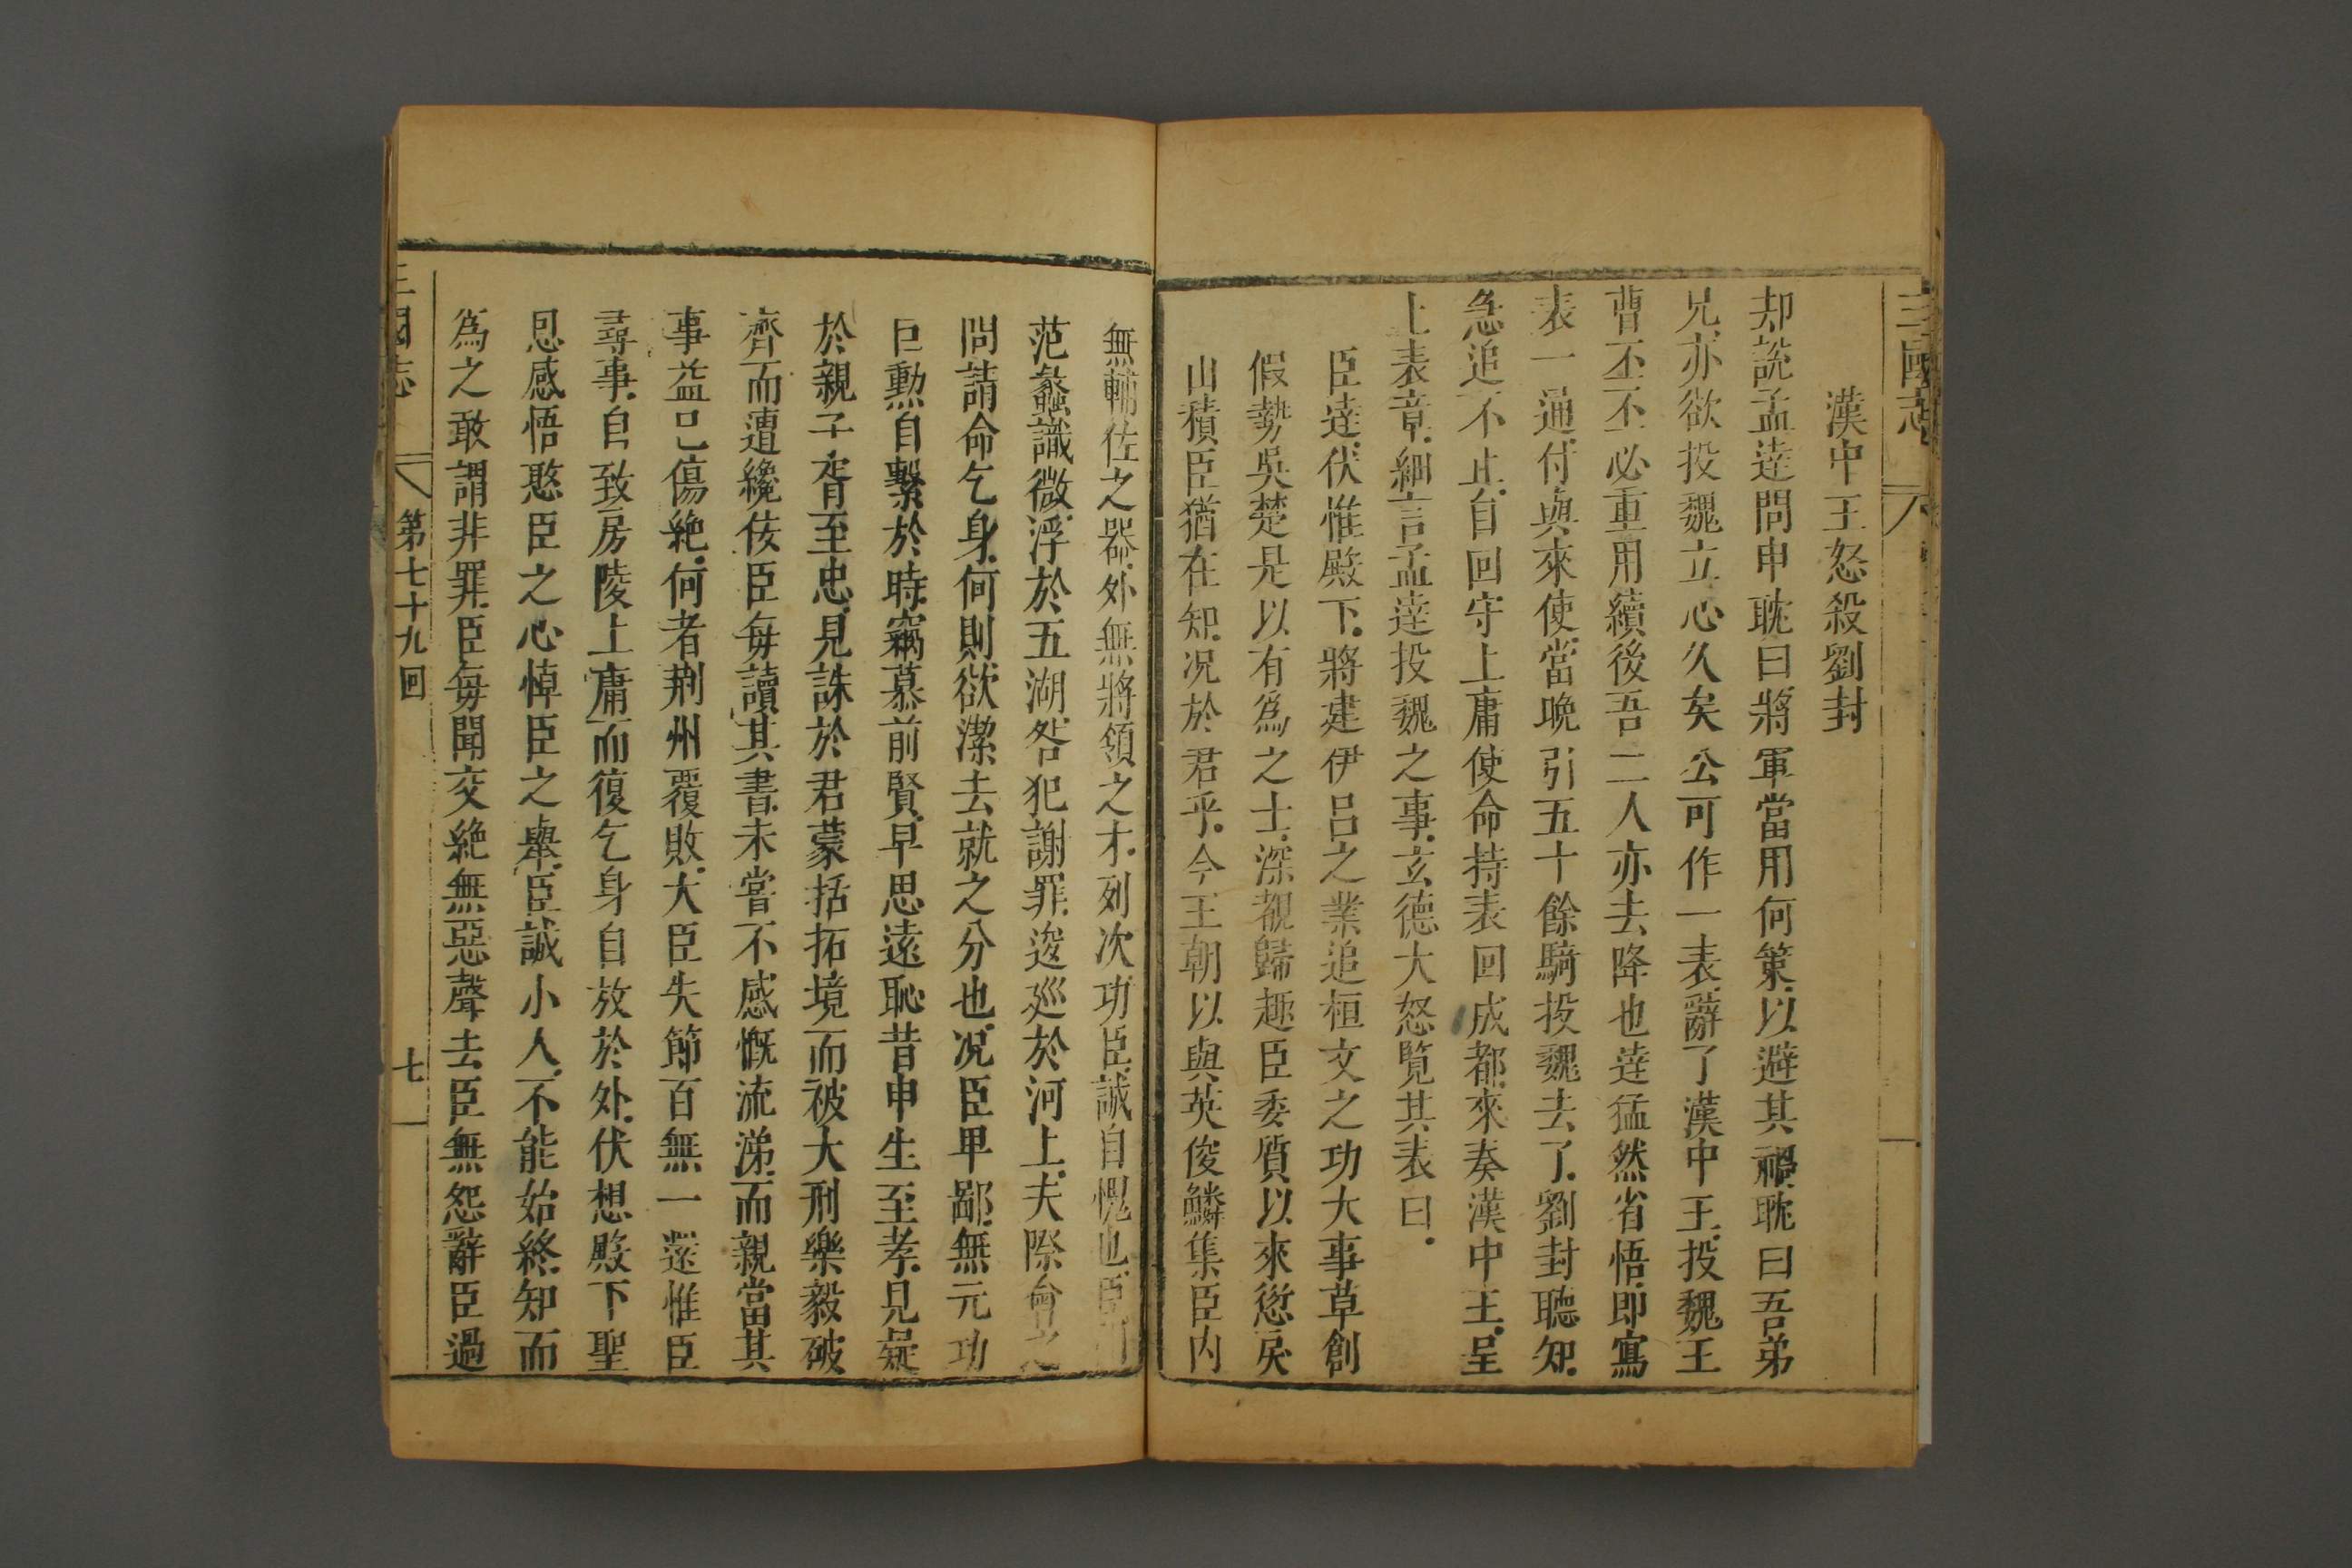 三國志
漢中王怒殺劉封
却說孟達問申耽曰將軍當用何策以避其禍耽曰吾弟
兄亦欲投魏立心久矣公可作一表辭了漢中王投魏王
曹丕丕必重用續後吾二人亦去降也達猛然省悟即寫
表一通付與來使當晚引五十餘騎投魏去了劉封聽知
急追不止自回守上庸使命持表回成都來奏漢中王呈
上表章細言孟達投魏之事玄德大怒覽其表曰
臣達伏惟殿下將建伊呂之業追桓文之功大事草創
假勢吳楚是以有為之士深覩歸趣臣委質以來愆戾
山積臣猶在知况於君乎今王朝以與英俊鱗集臣內
無輔佐之器外無將領之才列次功臣誠自愧也臣
范蠡識微浮於五湖咎犯謝罪逡廵於河上夫際會之
問請命乞身何則欲潔去就之分也况臣卑鄙無元功
巨勳自繫於時竊慕前賢早思遠恥昔申生至孝見疑
於親子胥至忠見誅於君蒙括拓境而被大刑樂毅破
齊而遭纔佞臣每讀其書未嘗不感慨流涕而親當其
事益已傷絶何者荆州覆敗大臣失節百無一還惟臣
尋事自致房陵上庸而復乞身自放於外伏想殿下聖
恩感悟愍臣之心悼臣之舉臣誠小人不能始終知而
為之敢謂非罪臣每聞交絶無惡聲去臣無怨辭臣過
三國志 第七十九回 七